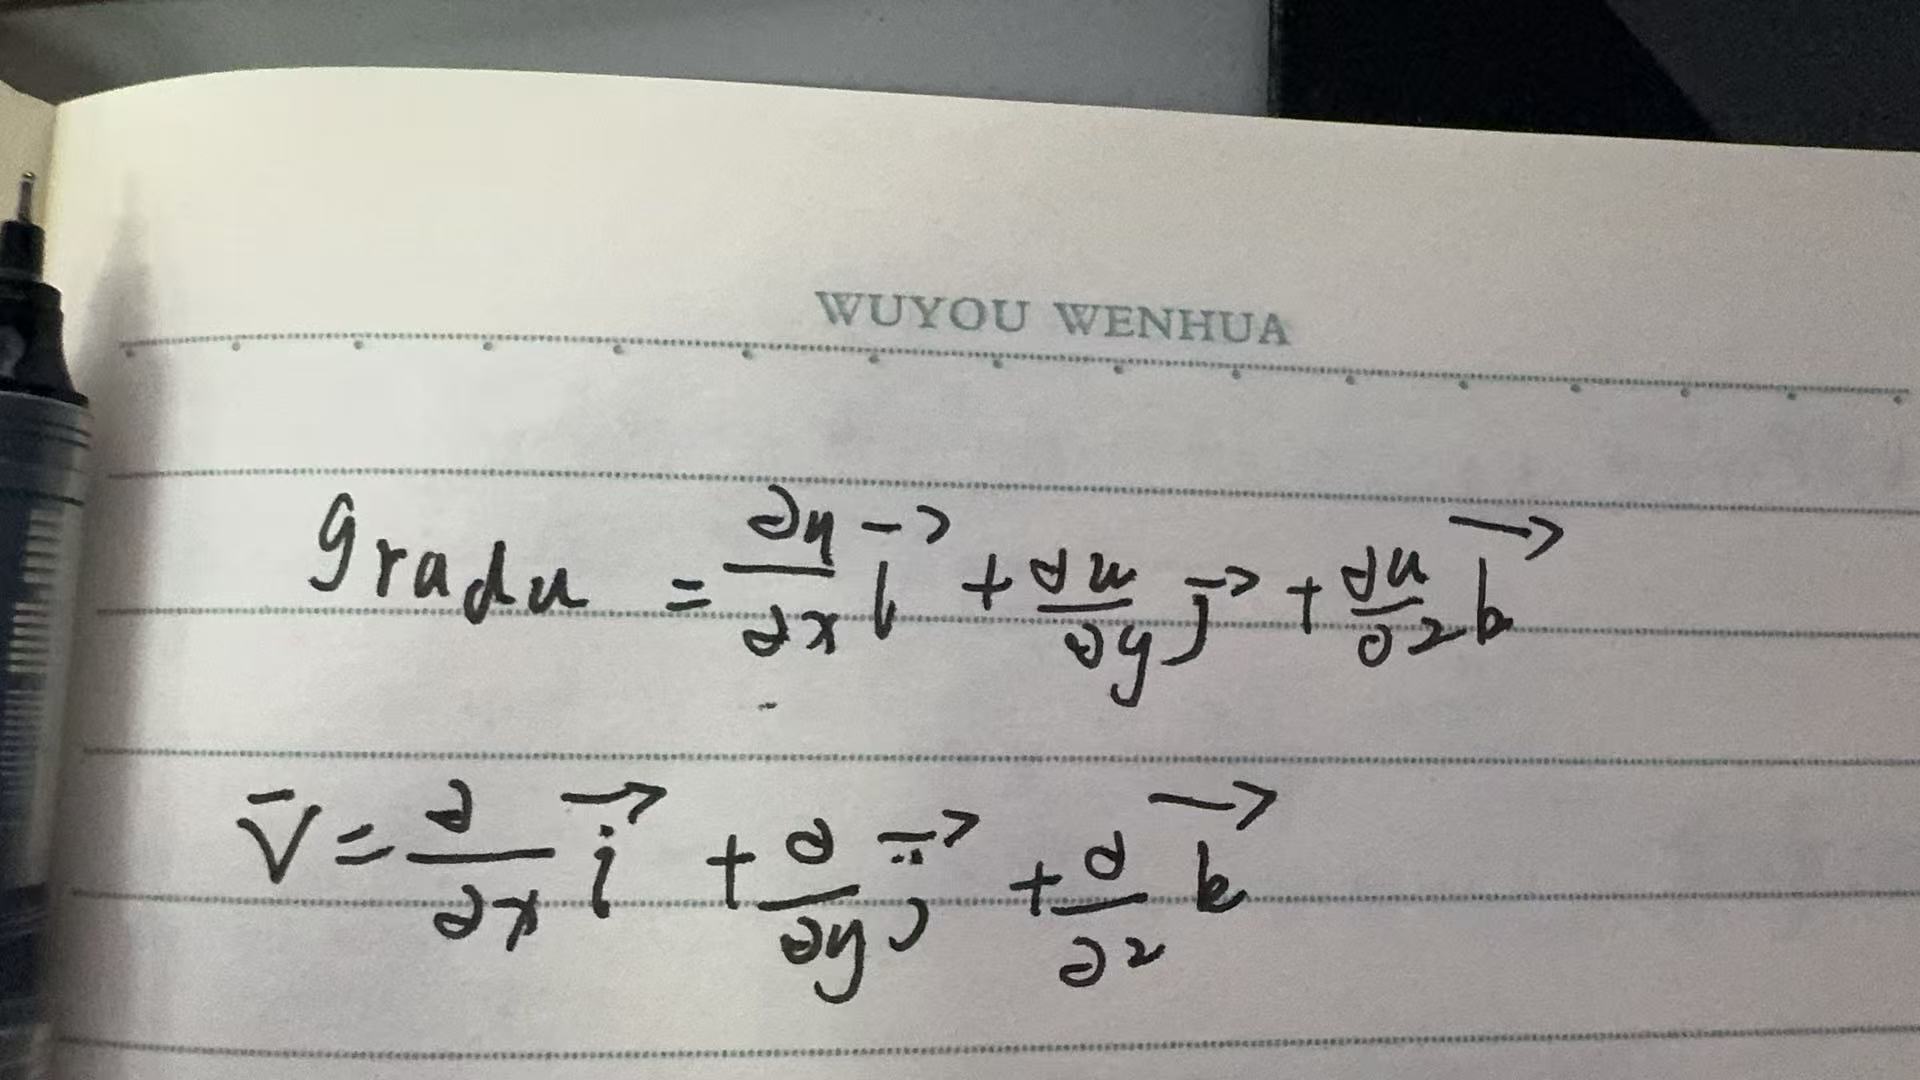 WUYOU WENHUA
gradu = ∂u/∂x i⃗ + ∂u/∂y j⃗ + ∂u/∂z k⃗
∇ = ∂/∂x i⃗ + ∂/∂y j⃗ + ∂/∂z k⃗